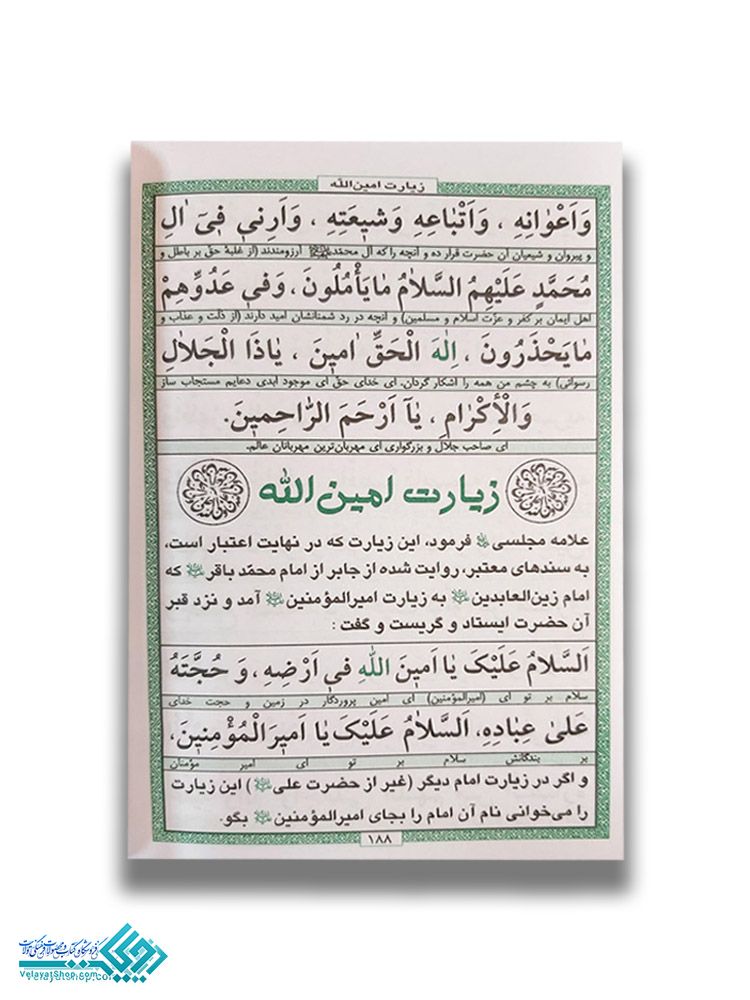 زیارت امین‌الله
وَاَعْوٰانِهِ ، وَاَتْبٰاعِهِ وَشیٖعَتِهِ ، وَاَرِنیٖ فیٖ اٰلِ
و پیروان و شیعیان آن حضرت قرار ده و آنچه را که آل محمّد آرزومندند (از غلبهٔ حق بر باطل و
مُحَمَّدٍ عَلَیْهِمُ السَّلاٰمُ مٰایَأْمُلُونَ ، وَفیٖ عَدُوِّهِمْ
اهل ایمان بر کفر و عزّت اسلام و مسلمین) و آنچه در رد شمنانشان امید دارند (از ذلّت و عذاب و
مٰایَحْذَرُونَ ، اِلٰهَ الْحَقِّ اٰمیٖنَ ، یٰاذَا الْجَلاٰلِ
رسوائی) به چشم من همه را آشکار گردان. ای خدای حقّ ای موجود ابدی دعایم مستجاب ساز
وَالْاِکْرٰامِ ، یٰآ اَرْحَمَ الرّٰاحِمیٖنَ.
ای صاحب جلال و بزرگواری ای مهربان‌ترین مهربانان عالم.
زیارت امین الله
علامه مجلسی فرمود، این زیارت که در نهایت اعتبار است،
به سندهای معتبر، روایت شده از جابر از امام محمّد باقر که
امام زین‌العابدین به زیارت امیرالمؤمنین آمد و نزد قبر
آن حضرت ایستاد و گریست و گفت :
اَلسَّلاٰمُ عَلَیْکَ یٰا اَمیٖنَ اللّٰهِ فیٖ اَرْضِهِ ، وَ حُجَّتَهُ
سلام بر تو ای (امیرالمؤمنین) ای امین پروردگار در زمین و حجت خدای
عَلیٰ عِبٰادِهِ، اَلسَّلاٰمُ عَلَیْکَ یٰا اَمیٖرَالْمُؤْمِنیٖنَ،
بر بندگانش سلام بر تو ای امیر مؤمنان
و اگر در زیارت امام دیگر (غیر از حضرت علی) این زیارت
را می‌خوانی نام آن امام را بجای امیرالمؤمنین بگو.
۱۸۸
فروشگاه کتاب و محصولات فرهنگی ولایت
VelayatShop.com